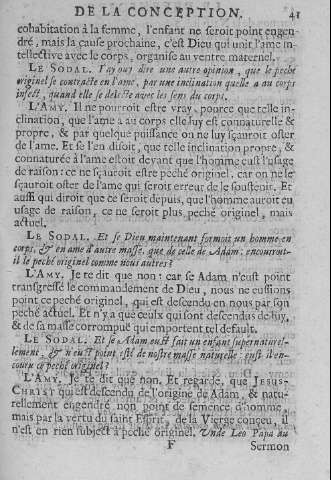 DE LA CONCEPTION. 41
cohabitation à la femme, l'enfant ne seroit point engen-
dré, mais la cause prochaine, c'est Dieu qui unit l'ame in-
tellective avec le corps, organise au ventre maternel.
LE SODAL. J'ay ouy dire une autre opinion, que le peché
originel se contracte en l'ame, par une inclination quelle a au corps
infect, quand elle se delecte avec les sens du corps.
L'AMY. Il ne pourroit estre vray, pource que telle in-
clination, que l'ame a au corps elle luy est connaturelle &
propre, & par quelque puissance on ne luy sçauroit oster
de l'ame. Et se l'en disoit, que telle inclination propre, &
connaturée à l'ame estoit devant que l'homme eust l'usage
de raison: ce ne sçauroit estre peché originel, car on ne le
sçauroit oster de l'ame qui seroit erreur de le soustenir. Et
aussi qui diroit que ce seroit depuis, que l'homme auroit eu
usage de raison, ce ne seroit plus peché originel, mais
actuel.
LE SODAL. Et se Dieu maintenant formoit un homme en
corps, & en ame d'autre masse, que de celle de Adam: encourroit-
il le peché originel comme nous autres?
L'AMY. Je te dit que non: car se Adam n'eust point
transgressé le commandement de Dieu, nous ne eussions
point ce peché originel, qui est descendu en nous par son
peché actuel. Et n'y a que ceulx qui sont descendus de luy,
& de sa masse corrompuë qui emportent tel default.
LE SODAL. Et se Adam eust fait un enfant supernaturel-
lement, & n'eust point esté de nostre masse naturelle: eust il en-
couru ce peché originel?
L'AMY. Je te dit que non. Et regarde, que JESUS-
CHRIST qui est descendu de l'origine de Adam, & natu-
rellement engendré non point de semence d'homme,
mais par la vertu du saint Esprit, de la Vierge conçeu, il
n'est en rien subject à peché originel. Unde Leo Papa au
F Sermon